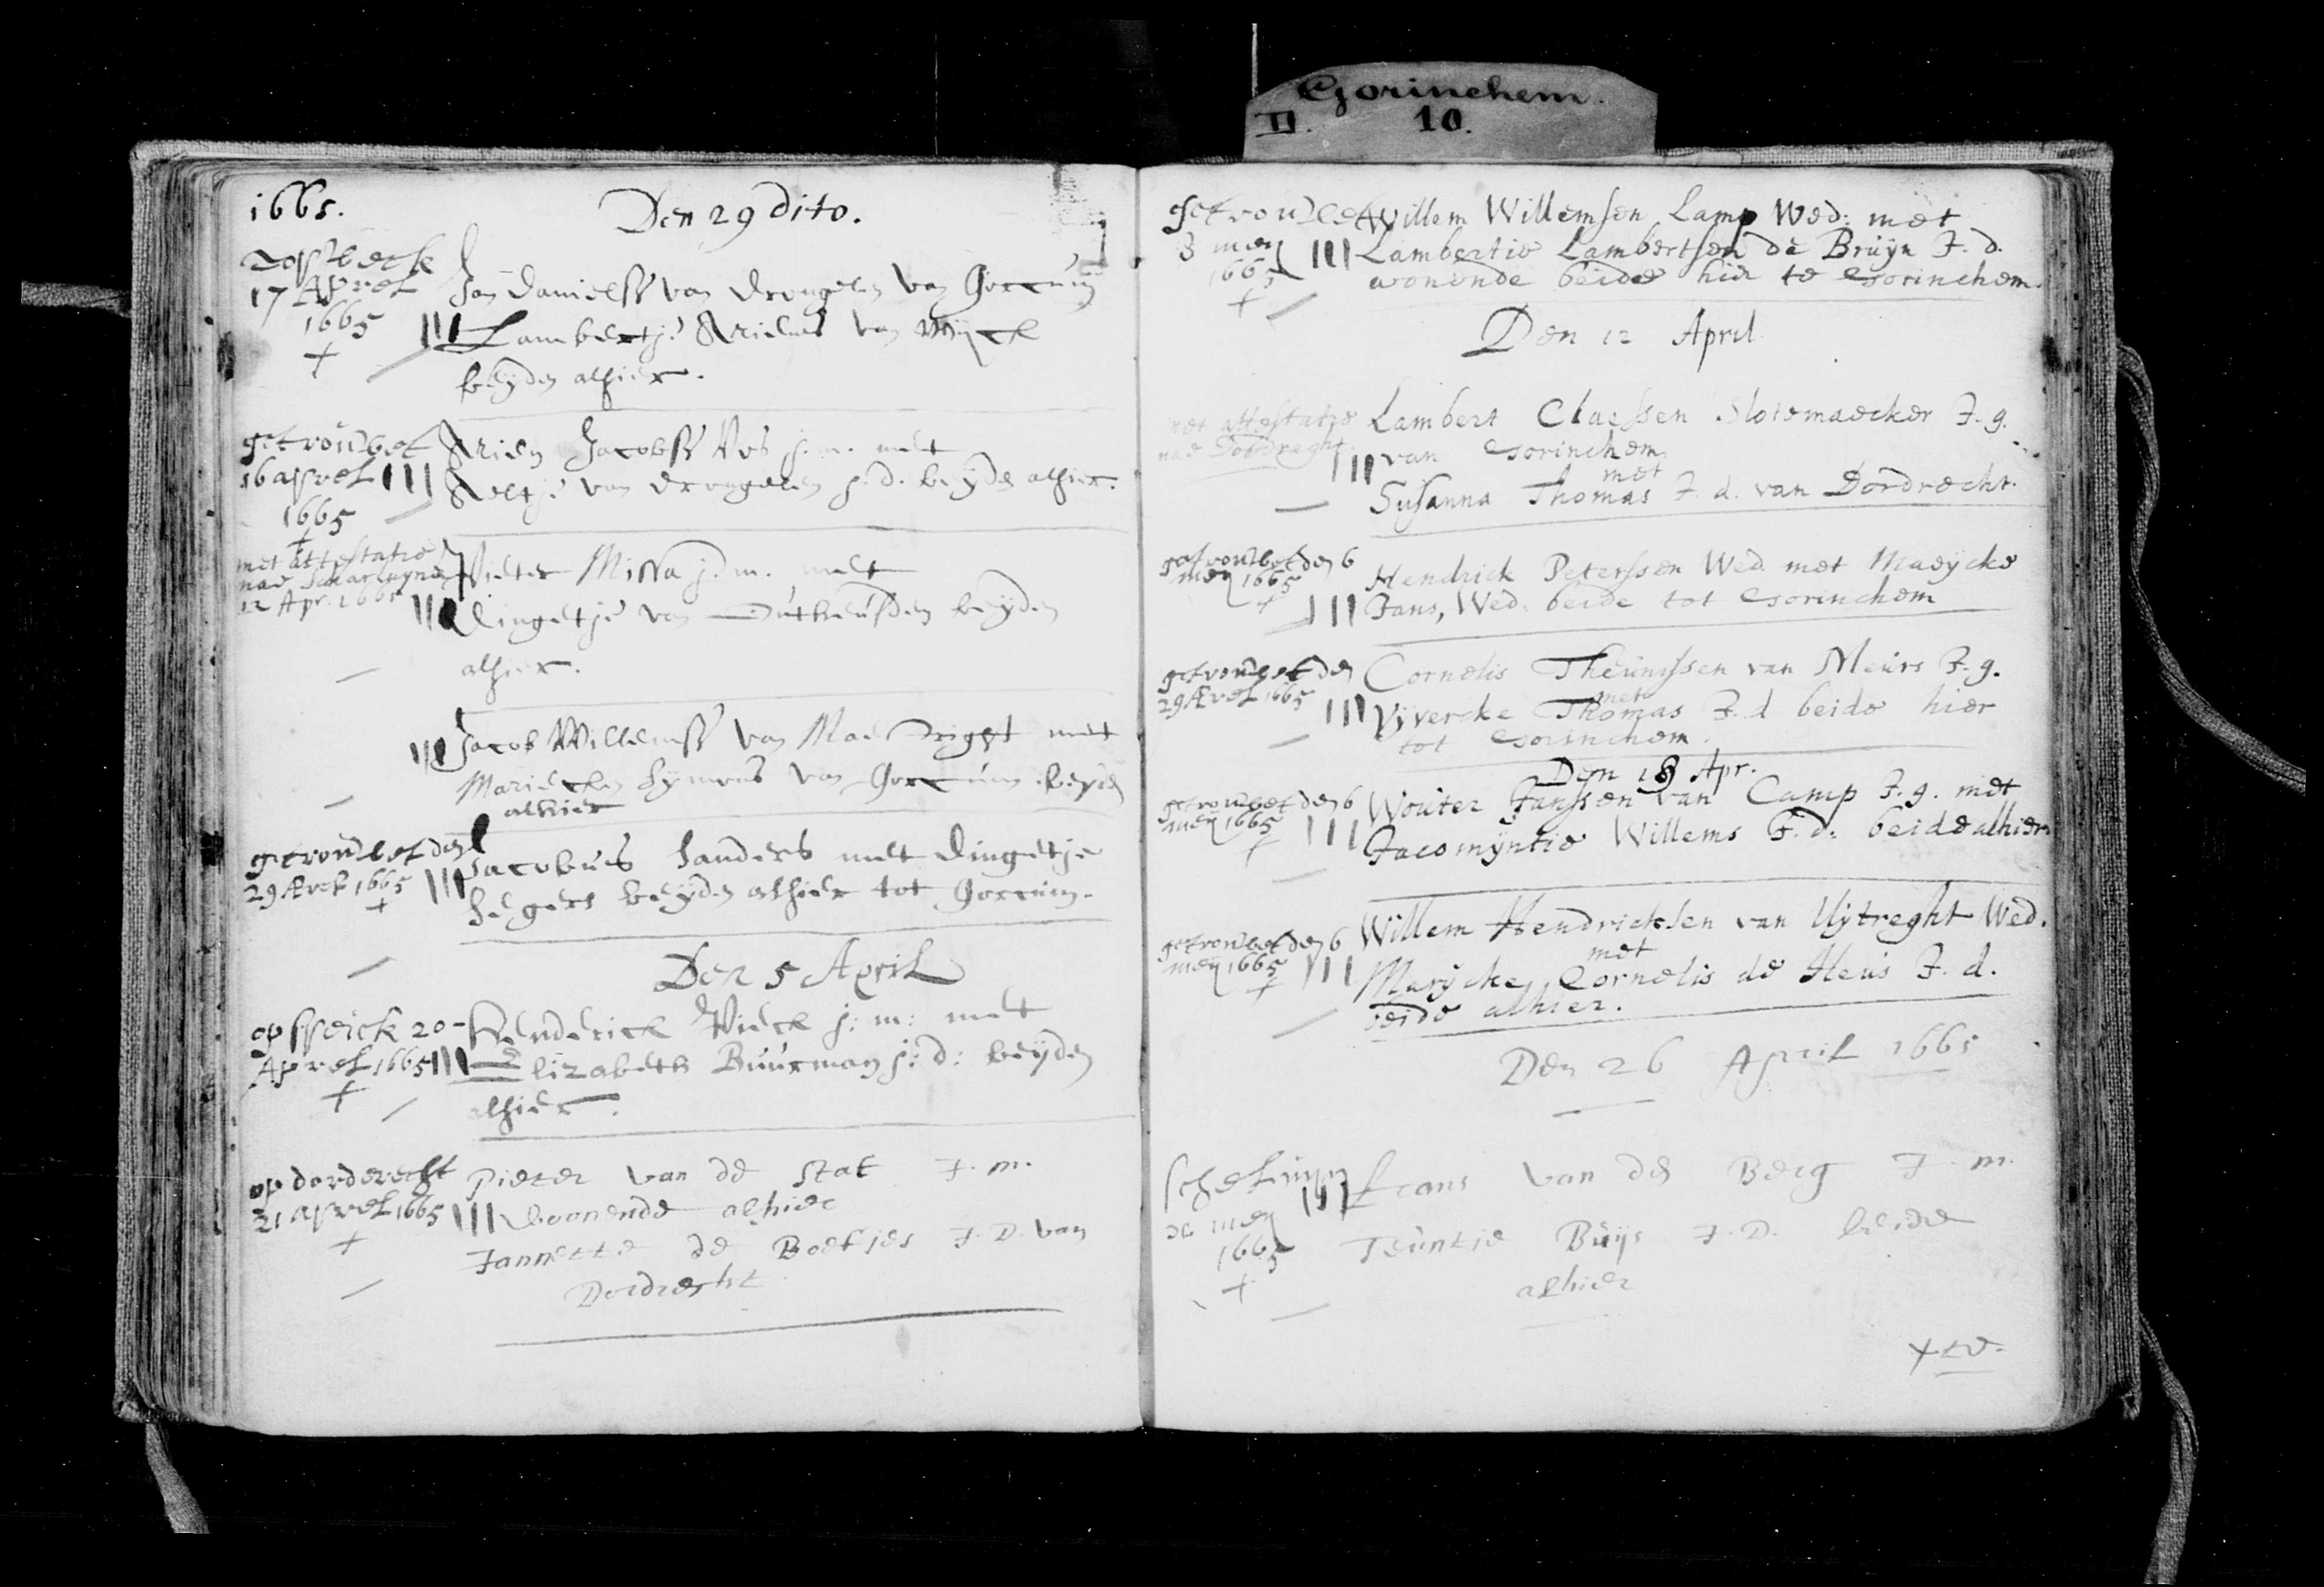 Gorinchem.
II. 10.
1665.
Den 29 dito.
17 Aprel
1665
Jan Danielss van Drongelen van Gorcum
Lambertje Ariens van Wijck
beyden alhier.
getroudet
16 aprel
1665
Arien Jacobss Vos j. m. met
Neeltje van Drongelen j. d. beyde alhier.
met attestatie
nae
12 Apr. 1665
Pieter Missa j. m. met
Dingetje van beyden
alhier.
Jacob Willemss van met
Mariecken Symons van Gorcum beyden
alhier
getroudet den
29 Aprel 1665
Jacobus Sanders met Dingetje
Segers beyden alhier tot Gorcum.
Den 5 April
op 20
Aprel 1665
Henderick Vieck j: m: met
Elizabeth Buurman j: d: beyden
alhier.
op dorderecht
21 aprel 1665
Pieter van de Stat J. m.
woonende alhier
Jannette de Boetjes J. D. van
Dordrecht
getroudet
3 meij
1665
Willem Willemsen Lamp Wed: met
Lambertie Lambertsen de Bruyn J. d.
wonende beide hier te Gorinchem.
Den 12 April
met attestatie
nae Dordreght.
Lambert Claessen Slotemaecker J. g.
van Gorinchem
met
Susanna Thomas J. d. van Dordrecht.
getroudet den 6
meij 1665
Hendrick Peterssen Wed. met Maeycke
Jans, Wed. beide tot Gorinchem
getroudet den
29 Aprel 1665
Cornelis Theunssen van Meurs J. g.
met
Yvercke Thomas J. d beide hier
tot Gorinchem.
Den 18 Apr.
getroudet den 6
meij 1665
Wouter Janssen van Camp J. g. met
Jacomyntie Willems J. d. beide alhier
getroudet den 6
meij 1665
Willem Hendricksen van Uytreght Wed.
met
Marycke Cornelis de Heus J. d.
beide alhier.
Den 26 April 1665
meij
1665
Frans van den Berg J. m.
Teuntie Buijs J. D. beide
alhier